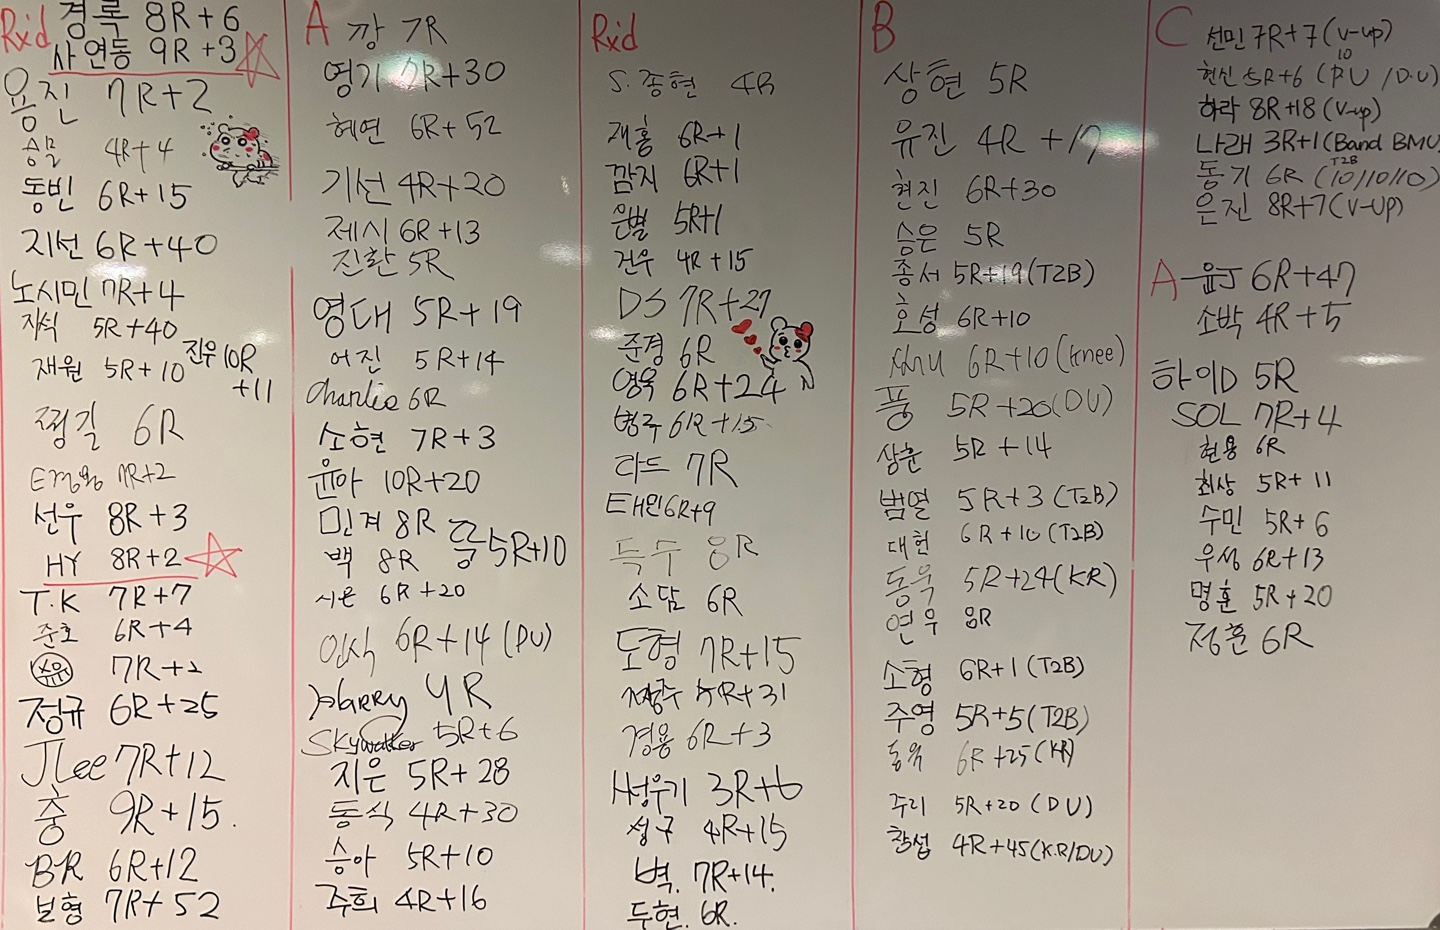 Rxd 경록 8R+6
사연동 9R+3
용진 7R+2
승물 4R+4
동빈 6R+15
지선 6R+40
노시민 7R+4
지식 5R+40
재원 5R+10 진우 10R
+11
찡길 6R
7R+2
선우 8R+3
HY 8R+2
T.K 7R+7
준호 6R+4
7R+2
정규 6R+25
JLee 7R+12
충 9R+15.
BR 6R+12
보형 7R+52
A 깡 7R
영기 7R+30
혜연 6R+52
기선 4R+20
제시 6R+13
진환 5R
영대 5R+19
어진 5R+14
Charlie 6R
소현 7R+3
윤아 10R+20
민계 8R
백 8R 쿵 5R+10
시은 6R+20
인식 6R+14 (DU)
Harry 4R
Skywalker 5R+6
지은 5R+28
동식 4R+30
승아 5R+10
주희 4R+16
Rxd
S.종현 4R
재홍 6R+1
깜지 6R+1
은별 5R+1
건우 4R+15
DS 7R+27
준경 6R
영욱 6R+24
병주 6R+15
타드 7R
태민 6R+9
득수 8R
소담 6R
도형 7R+15
5R+31
경용 6R+3
H성우기 3R+6
성구 4R+15
벽. 7R+14.
두현. 6R.
B
상현 5R
유진 4R+17
현진 6R+30
승은 5R
종서 5R+19(T2B)
호성 6R+10
6R+10 (knee)
풍 5R+20(DU)
상훈 5R+14
범열 5R+3 (T2B)
대헌 6R+10 (T2B)
동욱 5R+24(KR)
연우 8R
소형 6R+1 (T2B)
주영 5R+5(T2B)
동욱 6R+25(KR)
주리 5R+20 (DU)
창섭 4R+45(K.R/DU)
C 선민 7R+7 (v-up)
10
현신 5R+6 (PU/D.U)
하라 8R+18 (v-up)
나래 3R+1 (Band BMU
T2B
동기 6R (10/10/10)
은진 8R+7(V-UP)
A-윤J 6R+47
소박 4R+5
하이D 5R
SOL 7R+4
현용 6R
최상 5R+11
수민 5R+6
우성 6R+13
명훈 5R+20
정훈 6R